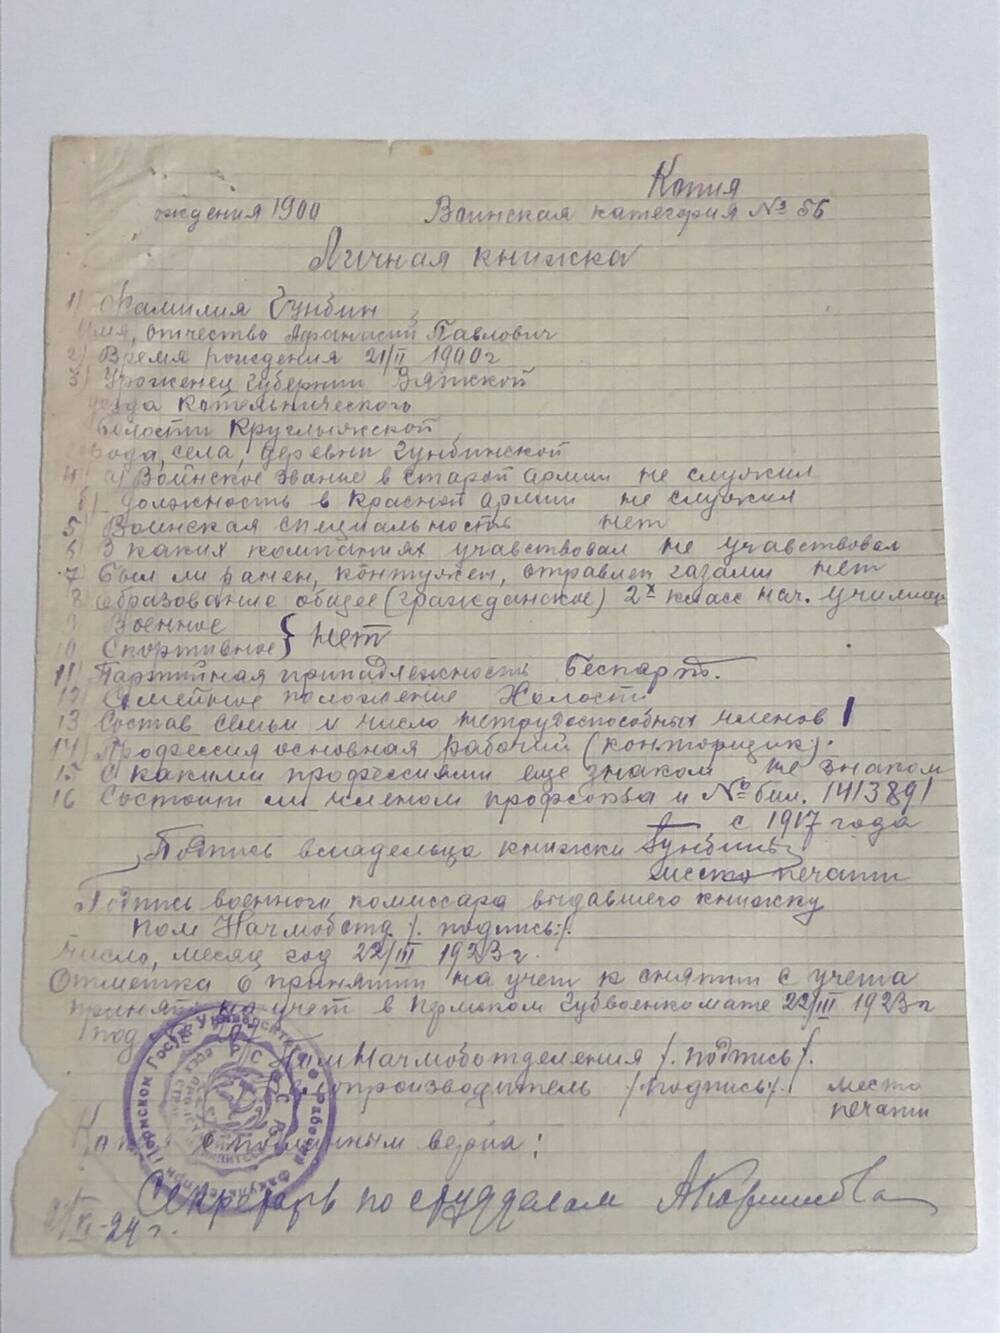 Копия
ождения 1900 Воинская категория № 56
Личная книжка
1) Фамилия Гунбин
Имя, отчество Афанасий Павлович
2) Время рождения 21/II 1900 г
3) Уроженец губернии Вятской
уезда Котельнического
Волости Круглыжской
рода, села, деревни Гунбинской
4) а) Воинское звание в старой армии не служил
б) должность в красной армии не служил
5) Воинская специальность нет
6) В каких компаниях учавствовал не учавствовал
7 был ли ранен, контужен, отравлен газами нет
8) образование общее (гражданское) 2х класс нач. училище
9 Военное
10 Спортивное } нет
11) Партийная принадлежность беспарт.
12) Семейное положение Холост
13 Состав семьи и число нетрудоспособных членов 1
14) Профессия основная рабочий (конторщик).
15 С какими профессиями еще знаком не знаком
16 Состоит ли членом профсоюза и № бил. 1413891
с 1917 года
Подпись владельца книжки Гунбинъ
место печати
Подпись военного комиссара выдавшего книжку
пом Начмоботд /. подпись /.
число, месяц год 22/III 1923 г.
Отметка о принятии на учет и снятии с учета
принят на учет в Пермском Губвоенкомате 22/III 1923 г
под
Пом Начмоботделения /. подпись /.
опроизводитель /. подпись /. место
печати
Копия с подлинным верна:
Секретарь по студделам
24 г.
Рабочий факультет при Пермском Госуд. Университете
Р.С.Ф.С.Р.